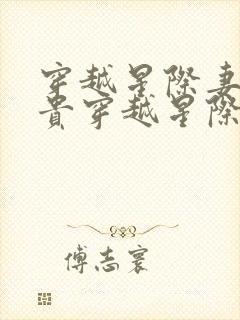 穿越星際妻
貴穿越星際
傅志寰